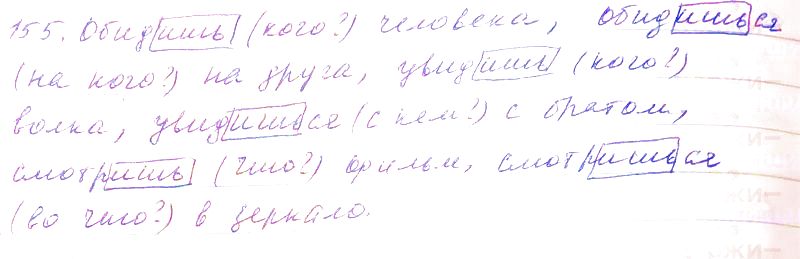 155. Обидишь (кого?) человека, обидишься
(на кого?) на друга, увидишь (кого?)
волка, увидишься (с кем?) с братом,
смотришь (что?) фильм, смотришься
(во что?) в зеркало.